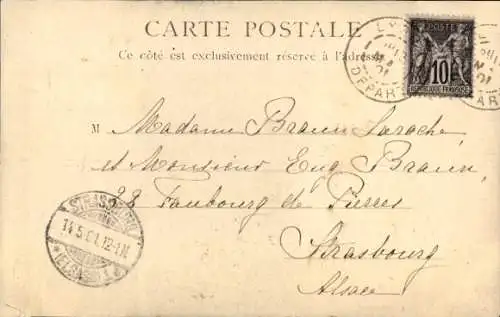 CARTE POSTALE
Ce côté est exclusivement réservé à l'adresse
POSTE
10
RÉPUBLIQUE FRANÇAISE
LY
DÉPART
01
M Madame Braun Laroche
et Monsieur Eug Braun,
28 Faubourg de Pierres
Strasbourg
Alsace
STRASSBURG
14.5.01.12-1N
(ELSASS)